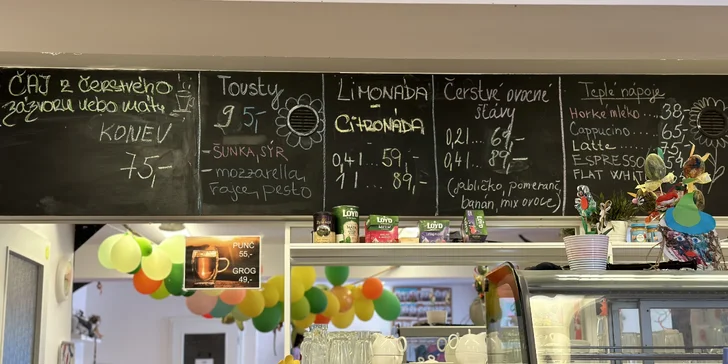 ČAJ z čerstvého
zázvoru nebo máty
KONEV
75,-
Tousty
95,-
- ŠUNKA, SÝR
- mozzarella,
rajče, pesto
LIMONÁDA
-
CITRONÁDA
0,4l ... 59,-
1l ... 89,-
Čerstvé ovocné
šťávy
0,2l ... 69,-
0,4l ... 89,-
(jablíčko, pomeranč,
banán, mix ovoce)
Teplé nápoje
Horké mléko ... 38,-
Cappucino ... 65,-
Latte ... 75,-
ESPRESSO
FLAT WHIT
PUNČ
55,-
GROG
49,-
LOYD
LOYD
LOYD